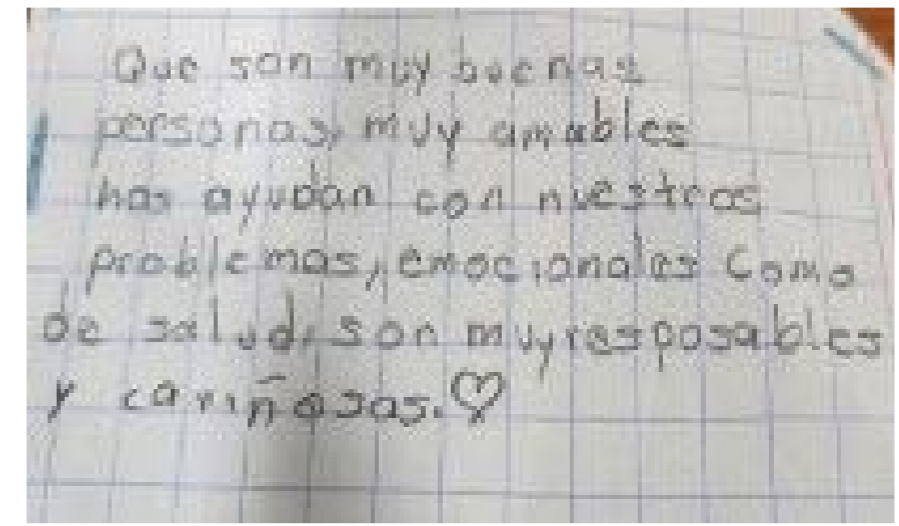 Que son muy buenas
personas, muy amables
nos ayudan con nuestros
problemas, emocionales Como
de salud, son muy resposables
y cariñosas.♡